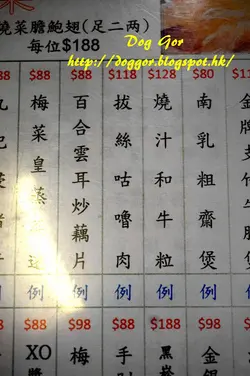 菜膽鮑翅(足二两)
每位$188
Dog Gor
http://doggor.blogspot.hk/
$88 $88 $88 $118 $128 $80
梅菜皇蒸
百合雲耳炒藕片
拔絲咕嚕肉
燒汁和牛粒
南乳粗齋煲
例 例 例 例 例
$88 $98 $88 $188 $98
XO醬
梅
手
黑
金銀